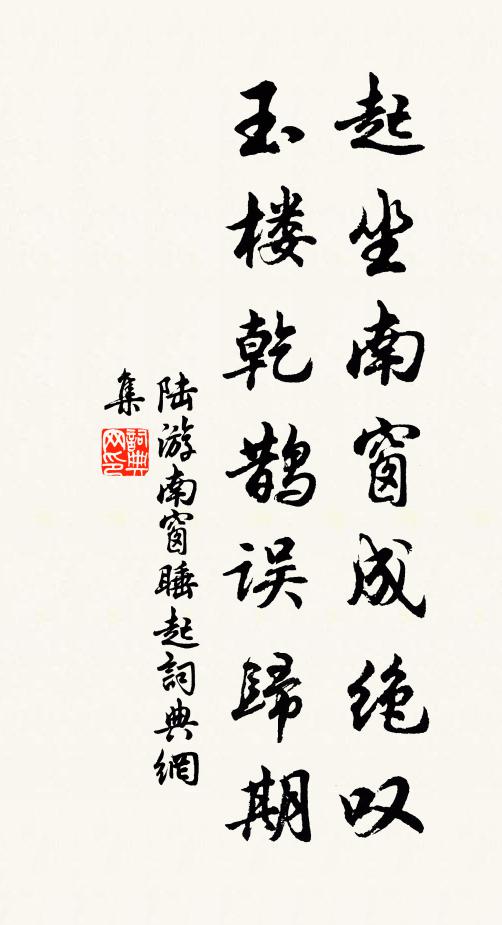 起坐南窗成绝叹
玉楼乾鹊误歸期
陆游南窗睡起詞典網
集
詞典网印